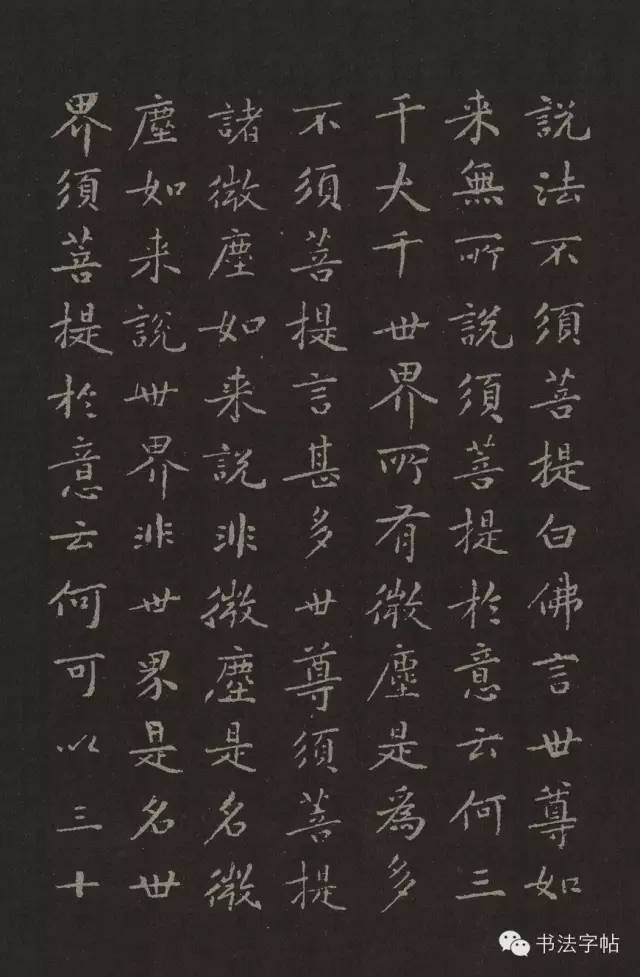 說法不須菩提白佛言世尊如
来無所說須菩提於意云何三
千大千世界所有微塵是為多
不須菩提言甚多世尊須菩提
諸微塵如来說非微塵是名微
塵如来說世界非世界是名世
界須菩提於意云何可以三十
书法字帖